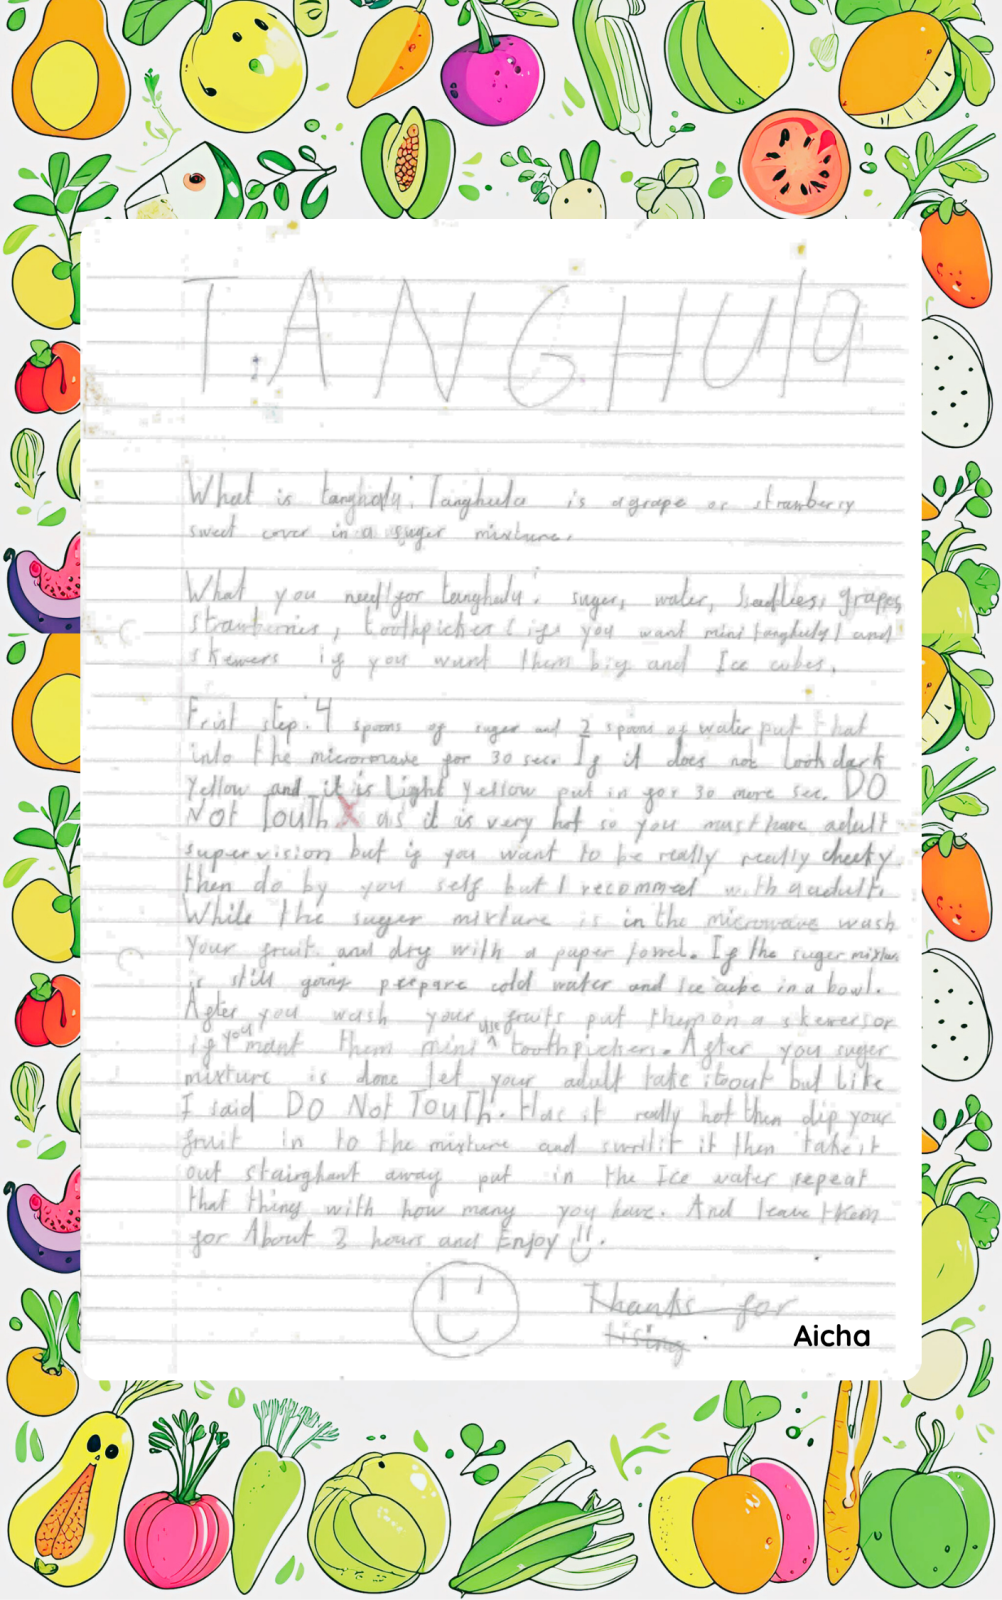 TANGHUla
What is tanghulu: Tanghulu is a grape or strawberry
sweet cover in a suger mixture.
What you need for tanghulu: suger, water, Seedless, grapes
strawberries, toothpickes (if you want mini tanghulu) and
skewers if you want them big and Ice cubes.
Frist step: 4 spoons of suger and 2 spoons of water put that
into the microwave for 30 sec. If it does not look dark
yellow and it is Light yellow put in for 30 more sec. DO
Not TouTh as it is very hot so you must have adult
supervision but if you want to be really really cheeky
then do by you self but I recommed with a adult.
While the suger mixture is in the microwave wash
your fruit and dry with a paper towel. If the suger mixture
is still going prepare cold water and Ice cube in a bowl.
After you wash your fruits put them on a skewers or
if you want them mini use toothpickers. After you suger
mixture is done let your adult take it out but Like
I said DO Not TouTh. Has it really hot then dip your
fruit in to the mixture and swril it it then take it
out stairghant away put in the Ice water repeat
that thing with how many you have. And leave them
for About 2 hours and Enjoy !!.
Thanks for
Aicha